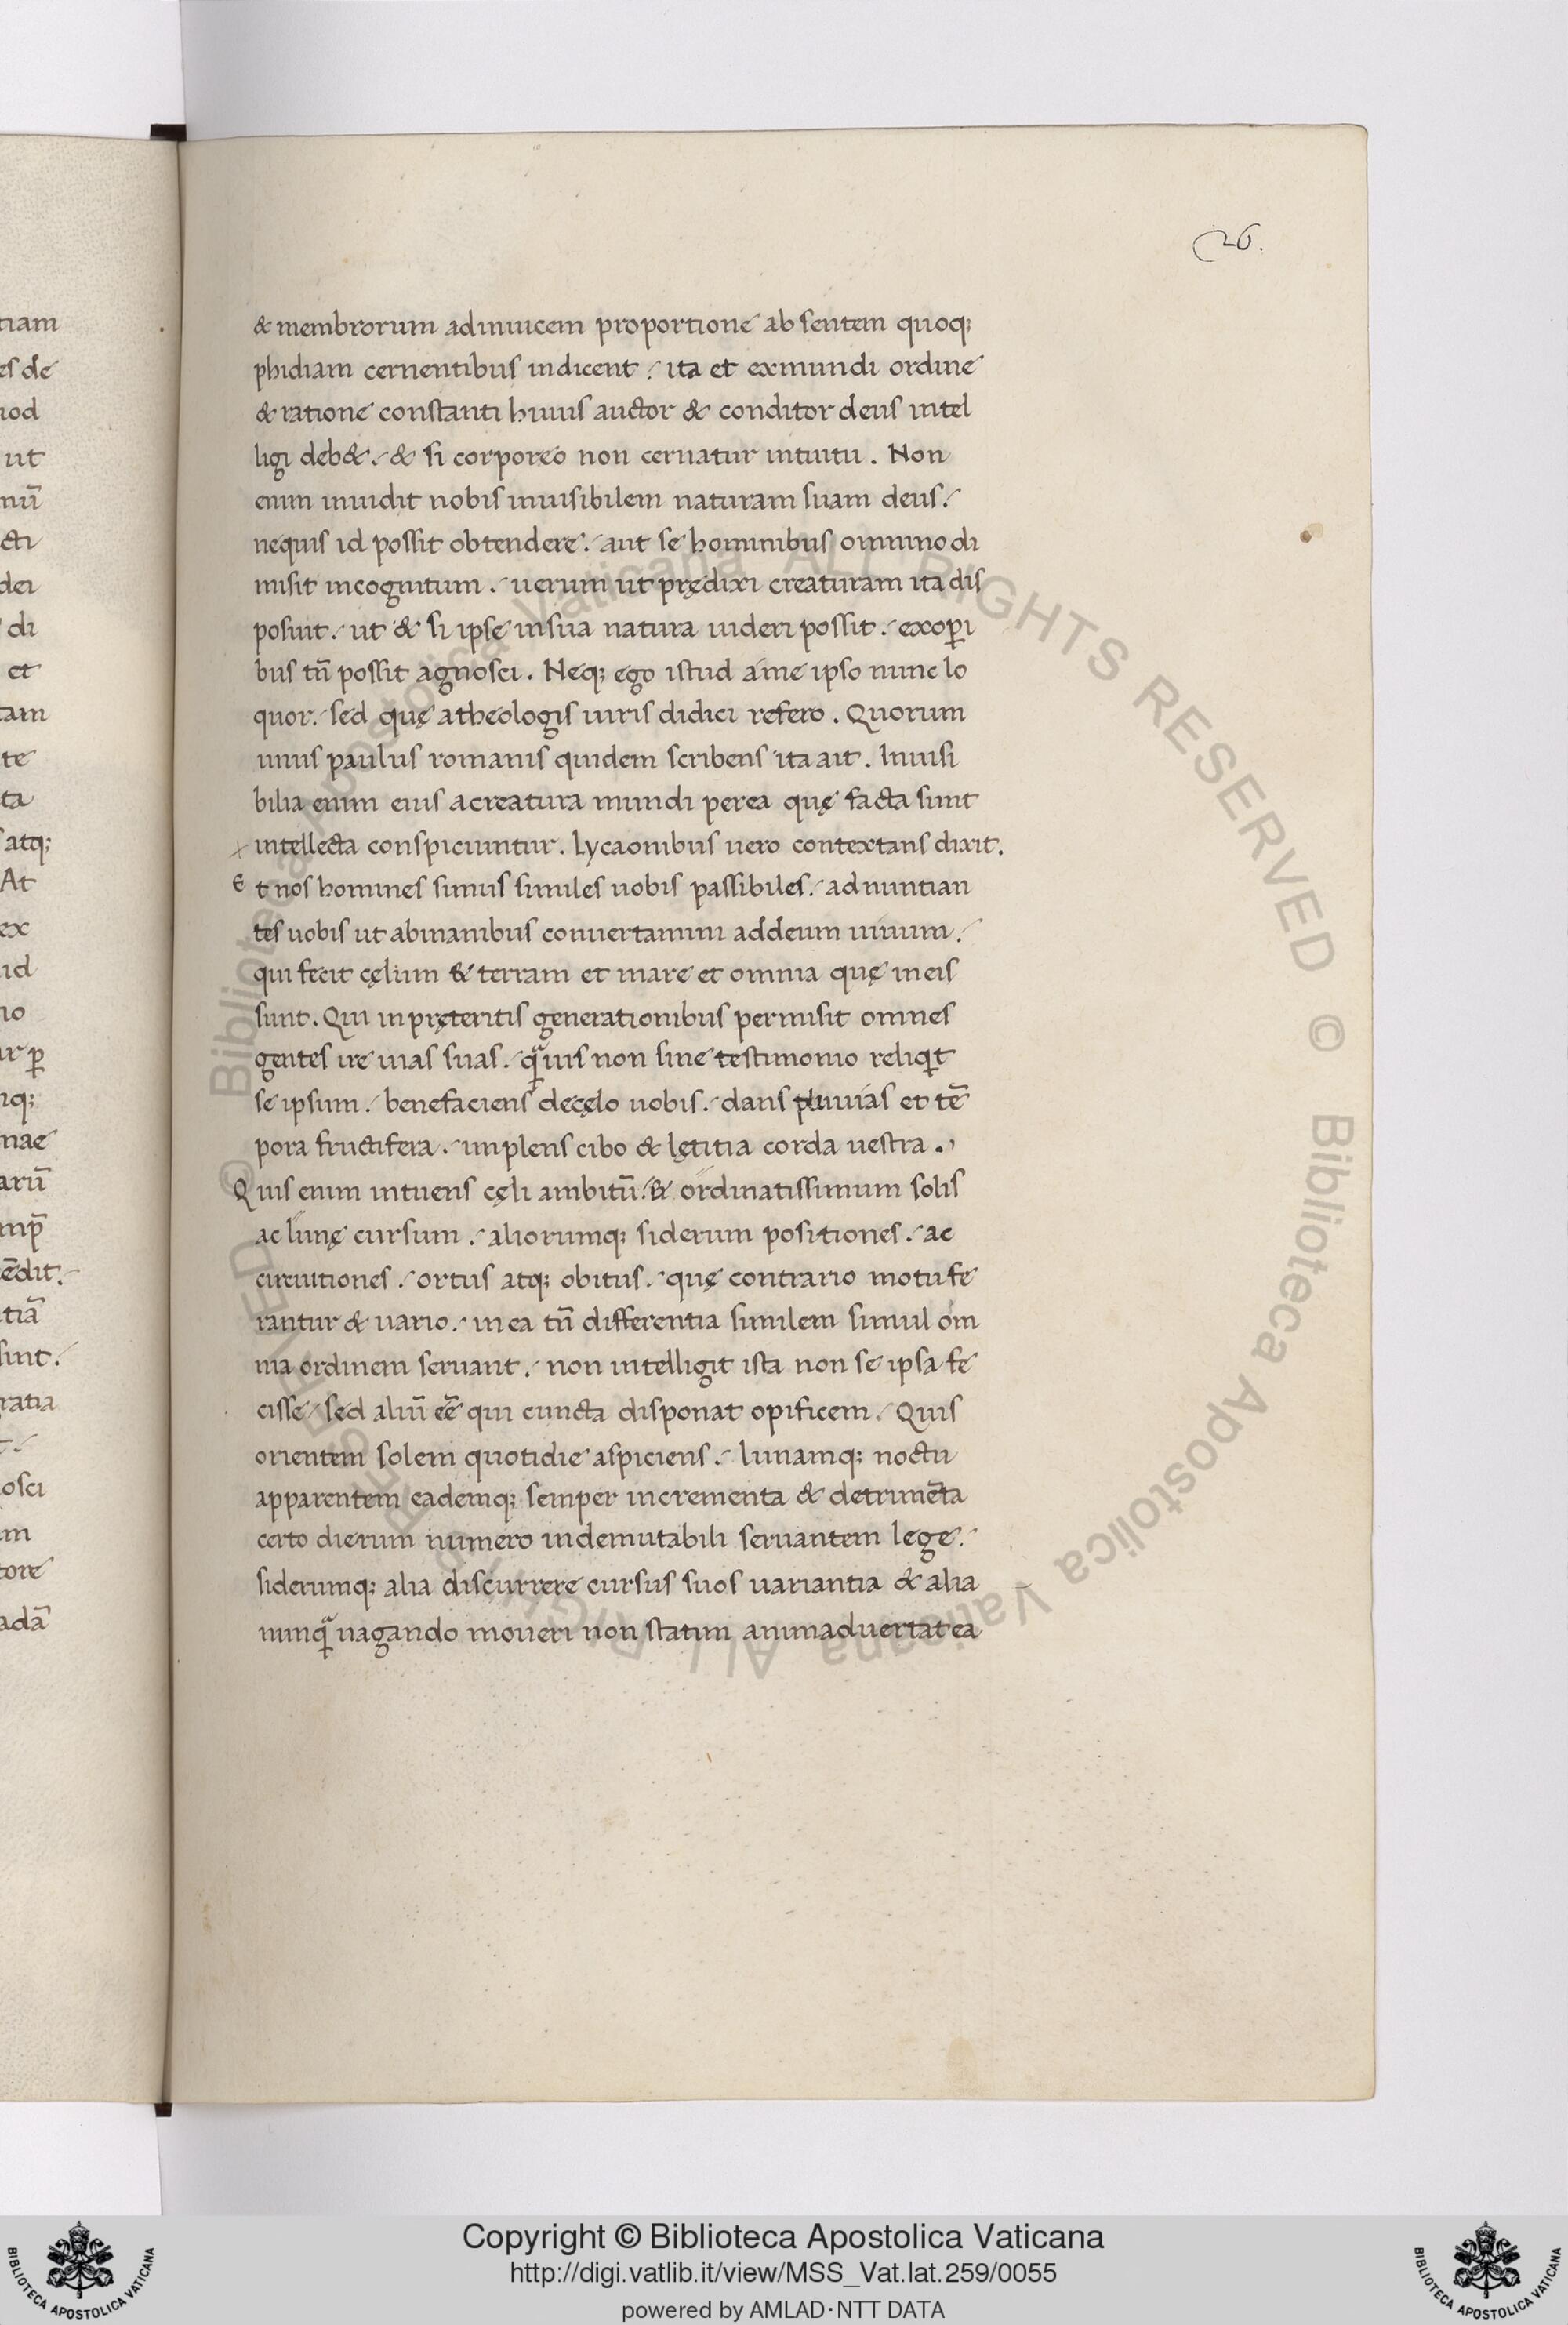 26.
& membrorum adinuicem proportione absentem quoq;
phidiam cernentibus indicent. ita et exmundi ordine
& ratione constanti huius auctor & conditor deus intel
ligi deb&. & si corporeo non cernatur intuitu. Non
enim inuidit nobis inuisibilem naturam suam deus.
nequis id possit obtendere. aut se hominibus omnino di
misit incognitum. uerum ut prędixi creaturam ita dis
posuit. ut & si ipse insua natura uideri possit. exoꝑi
bus tñ possit agnosci. Neq; ego istud ame ipso nunc lo
quor. sed quę atheologis uiris didici refero. Quorum
unus paulus romanis quidem scribens ita ait. Inuisi
bilia enim eius acreatura mundi perea quę facta sunt
intellecta conspiciuntur. Lycaonibus uero contextans dixit.
Et nos homines sumus similes uobis passibiles. adnuntian
tes uobis ut abinanibus conuertamini addeum uiuum.
qui fecit cęlum & terram et mare et omnia quę ineis
sunt. Qui inpręteritis generationibus permisit omnes
gentes ire uias suas. quãuis non sine testimonio reliqͥt
se ipsum. benefaciens decęlo uobis. dans pluuias et tē
pora fructifera. implens cibo & lętitia corda uestra.
Quis enim intuens cęli ambitū. & ordinatissimum solis
ac lunę cursum. aliorumq; siderum positiones. ac
circuitiones. ortus atq; obitus. quę contrario motu fe
rantur & uario. in ea tñ differentia similem simul om
nia ordinem seruant. non intelligit ista non se ipsa fe
cisse sed aliū eē qui cuncta disponat opificem. Quis
orientem solem quotidie aspiciens. lunamq; noctu
apparentem eademq; semper incrementa & detrimēta
certo dierum numero indemutabili seruantem lege.
siderumq; alia discurrere cursus suos uariantia & alia
nunqã uagando moueri non statim animaduertat ea
tiam
es de
iod
ut
nū
cti
dei
di
et
tam
te
ta
atq;
At
ex
id
no
ur ꝑ
nq;
nae
arū
ēdit.
tiā
sint.
ratia
osci
m
tore
adā
© Biblioteca Apostolica Vaticana ALL RIGHTS RESERVED © Biblioteca Apostolica Vaticana ALL RIGHTS RESERVED
Copyright © Biblioteca Apostolica Vaticana
http://digi.vatlib.it/view/MSS_Vat.lat.259/0055
powered by AMLAD·NTT DATA
BIBLIOTECA APOSTOLICA VATICANA
BIBLIOTECA APOSTOLICA VATICANA